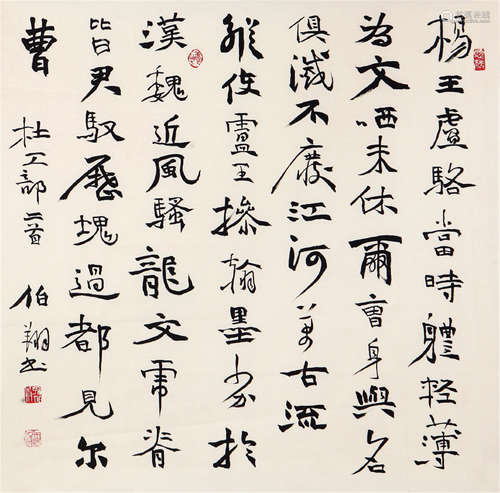 楊王盧駱當時體輕薄
為文哂未休爾曹身與名
俱滅不廢江河萬古流
縱使盧王操翰墨劣於
漢魏近風騷龍文虎脊
皆君馭歷塊過都見尔
曹
杜工部二首 伯翔书